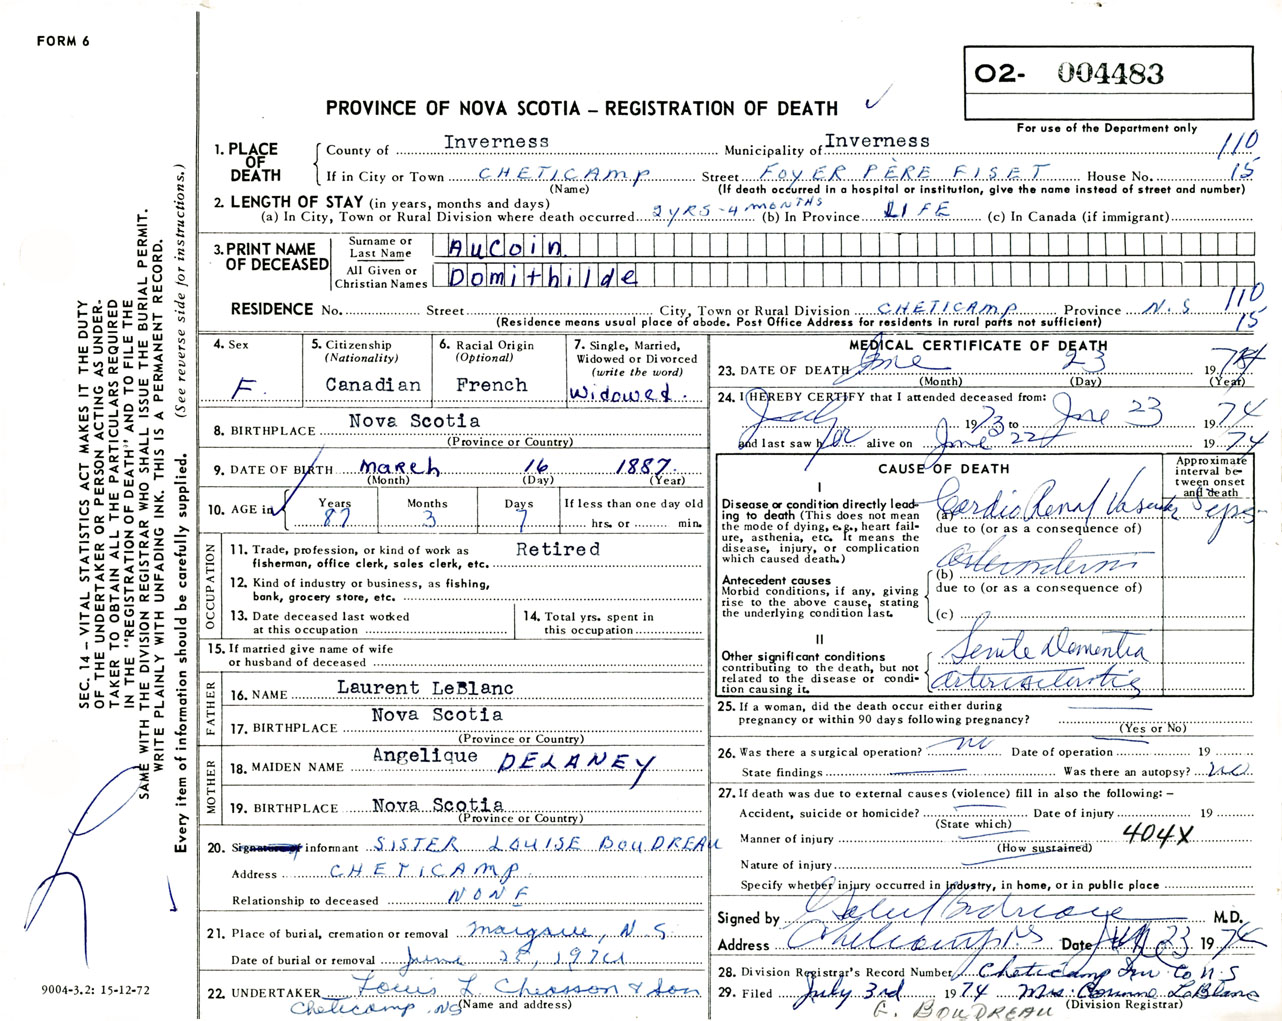 FORM 6
O2- 004483
For use of the Department only
PROVINCE OF NOVA SCOTIA – REGISTRATION OF DEATH
1. PLACE OF DEATH
County of Inverness Municipality of Inverness 110
If in City or Town CHETICAMP Street FOYER PÈRE FISET House No. 15
(Name) (If death occurred in a hospital or institution, give the name instead of street and number)
2. LENGTH OF STAY (in years, months and days)
(a) In City, Town or Rural Division where death occurred 2 YRS - 4 MONTHS (b) In Province LIFE (c) In Canada (if immigrant)
3. PRINT NAME OF DECEASED
Surname or Last Name AUCOIN
All Given or Christian Names Domithilde
RESIDENCE No. Street City, Town or Rural Division CHETICAMP Province N.S 110 15
(Residence means usual place of abode. Post Office Address for residents in rural parts not sufficient)
4. Sex F.
5. Citizenship (Nationality) Canadian
6. Racial Origin (Optional) French
7. Single, Married, Widowed or Divorced (write the word) Widowed.
8. BIRTHPLACE Nova Scotia
(Province or Country)
9. DATE OF BIRTH March 16 1887.
(Month) (Day) (Year)
10. AGE in Years 87 Months 3 Days 7 If less than one day old
hrs. or min.
OCCUPATION
11. Trade, profession, or kind of work as Retired
fisherman, office clerk, sales clerk, etc.
12. Kind of industry or business, as fishing,
bank, grocery store, etc.
13. Date deceased last worked
at this occupation
14. Total yrs. spent in
this occupation
15. If married give name of wife
or husband of deceased
FATHER
16. NAME Laurent LeBlanc
17. BIRTHPLACE Nova Scotia
(Province or Country)
MOTHER
18. MAIDEN NAME Angelique DELANEY
19. BIRTHPLACE Nova Scotia
(Province or Country)
20. Signature of informant SISTER LOUISE BOUDREAU
Address CHETICAMP
Relationship to deceased NONE
21. Place of burial, cremation or removal Margaree, N.S.
Date of burial or removal June 25, 1974
22. UNDERTAKER Louis L Chiasson & Son
Cheticamp NS (Name and address)
MEDICAL CERTIFICATE OF DEATH
23. DATE OF DEATH June 23 1974
(Month) (Day) (Year)
24. I HEREBY CERTIFY that I attended deceased from:
July 1973 to June 23 1974
and last saw her alive on June 22 1974
CAUSE OF DEATH
Approximate interval between onset and death
I
Disease or condition directly leading to death (This does not mean the mode of dying, e.g., heart failure, asthenia, etc. It means the disease, injury, or complication which caused death.)
(a) Cardio Renal Vascular 5 yrs
due to (or as a consequence of)
Antecedent causes
Morbid conditions, if any, giving rise to the above cause, stating the underlying condition last.
(b)
due to (or as a consequence of)
(c)
II
Other significant conditions contributing to the death, but not related to the disease or condition causing it.
Senile Dementia
arteriosclerotic
25. If a woman, did the death occur either during
pregnancy or within 90 days following pregnancy?
(Yes or No)
26. Was there a surgical operation? no Date of operation 19
State findings Was there an autopsy? no
27. If death was due to external causes (violence) fill in also the following: –
Accident, suicide or homicide? Date of injury 19
(State which)
Manner of injury 404X
(How sustained)
Nature of injury
Specify whether injury occurred in industry, in home, or in public place
Signed by M.D.
Address Cheticamp N.S Date 23 1974
28. Division Registrar's Record Number Cheticamp Inv. Co N.S
29. Filed July 3rd 1974 Mrs. Corinne LeBlanc
(Division Registrar)
E. BOUDREAU
SEC. 14 – VITAL STATISTICS ACT MAKES IT THE DUTY
OF THE UNDERTAKER OR PERSON ACTING AS UNDERTAKER TO OBTAIN ALL THE PARTICULARS REQUIRED
IN THE "REGISTRATION OF DEATH" AND TO FILE THE
SAME WITH THE DIVISION REGISTRAR WHO SHALL ISSUE THE BURIAL PERMIT.
WRITE PLAINLY WITH UNFADING INK. THIS IS A PERMANENT RECORD.
Every item of information should be carefully supplied. (See reverse side for instructions.)
9004-3.2: 15-12-72